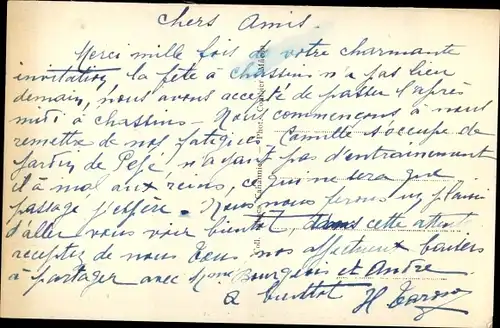 chers Amis.
Merci mille fois de votre charmante
invitation, la fête à chassins n'a pas lieu
demain, nous avons accepté de passer l'après
midi à chassins - Nous commençons à nous
remettre de nos fatigues. Camille s'occupe du
jardin de Pépé, n'ayant pas d'entrainement
il à mal aux reins, ce qui ne sera que
passage j'espère. Nous nous ferons un plaisir
d'aller vous voir bientôt, dans cette attente
recevez de nous tous, nos affectueux baisers
à partager avec Mme Bourgeois et André
a bientôt H